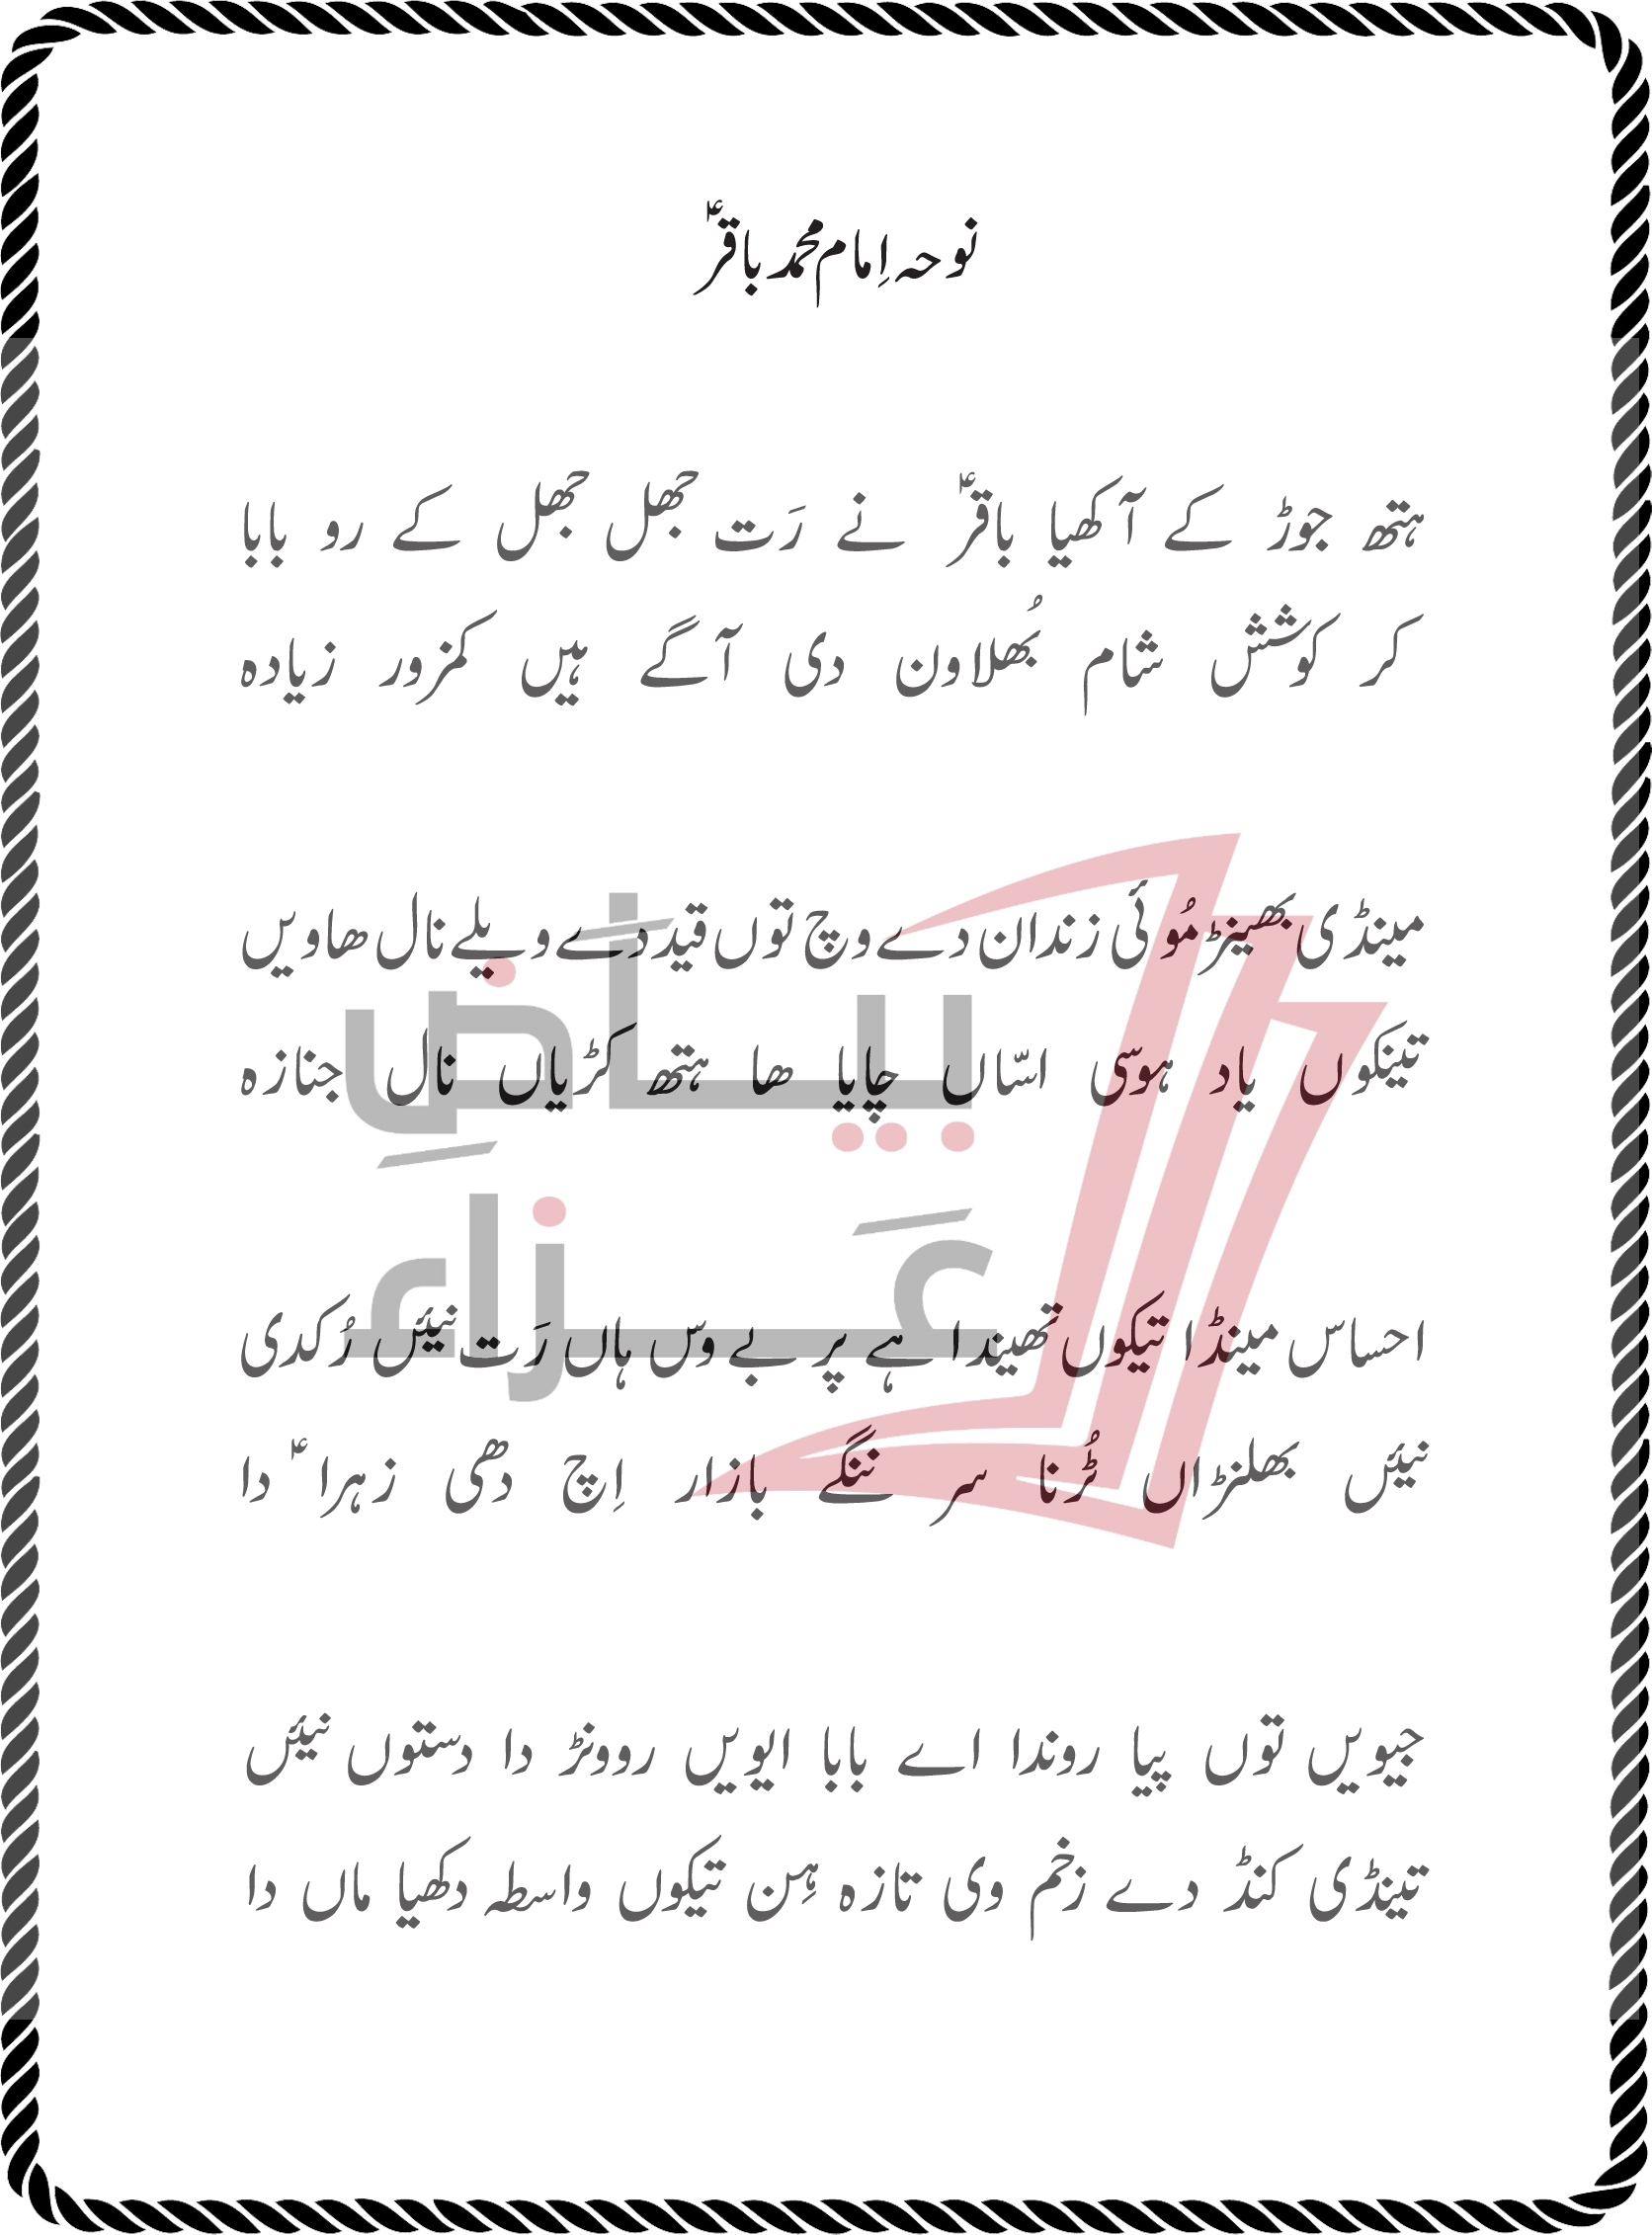 نوحہ اِمام محمد باقرؑ
ہتھ جوڑ کے آکھیا باقرؑ نے رَت جھل جھل کے رو بابا
کر کوشش شام بُھلاون دی آگے ہیں کمزور زیادہ
مینڈی بھینڑ مُوئی زندان دے وچ توں قید دے ویلے نال ھاویں
تینکوں یاد ہوسی اسّاں چایا ھا ہتھ کڑیاں نال جنازہ
بیاضِ
عَزاء
احساس مینڈا تیکوں تھیندا ہے پر بے وس ہاں رَت نیئں رُکدی
نیئں بھلنڑاں ٹُرنا سر ننگے بازار اِچ دھی زہراؑ دا
جیویں توں پیا روندا اے بابا ایویں روونڑ دا دستوں نیئں
تینڈی کنڈ دے زخم وی تازہ ہِن تیکوں واسطہ دکھیا ماں دا